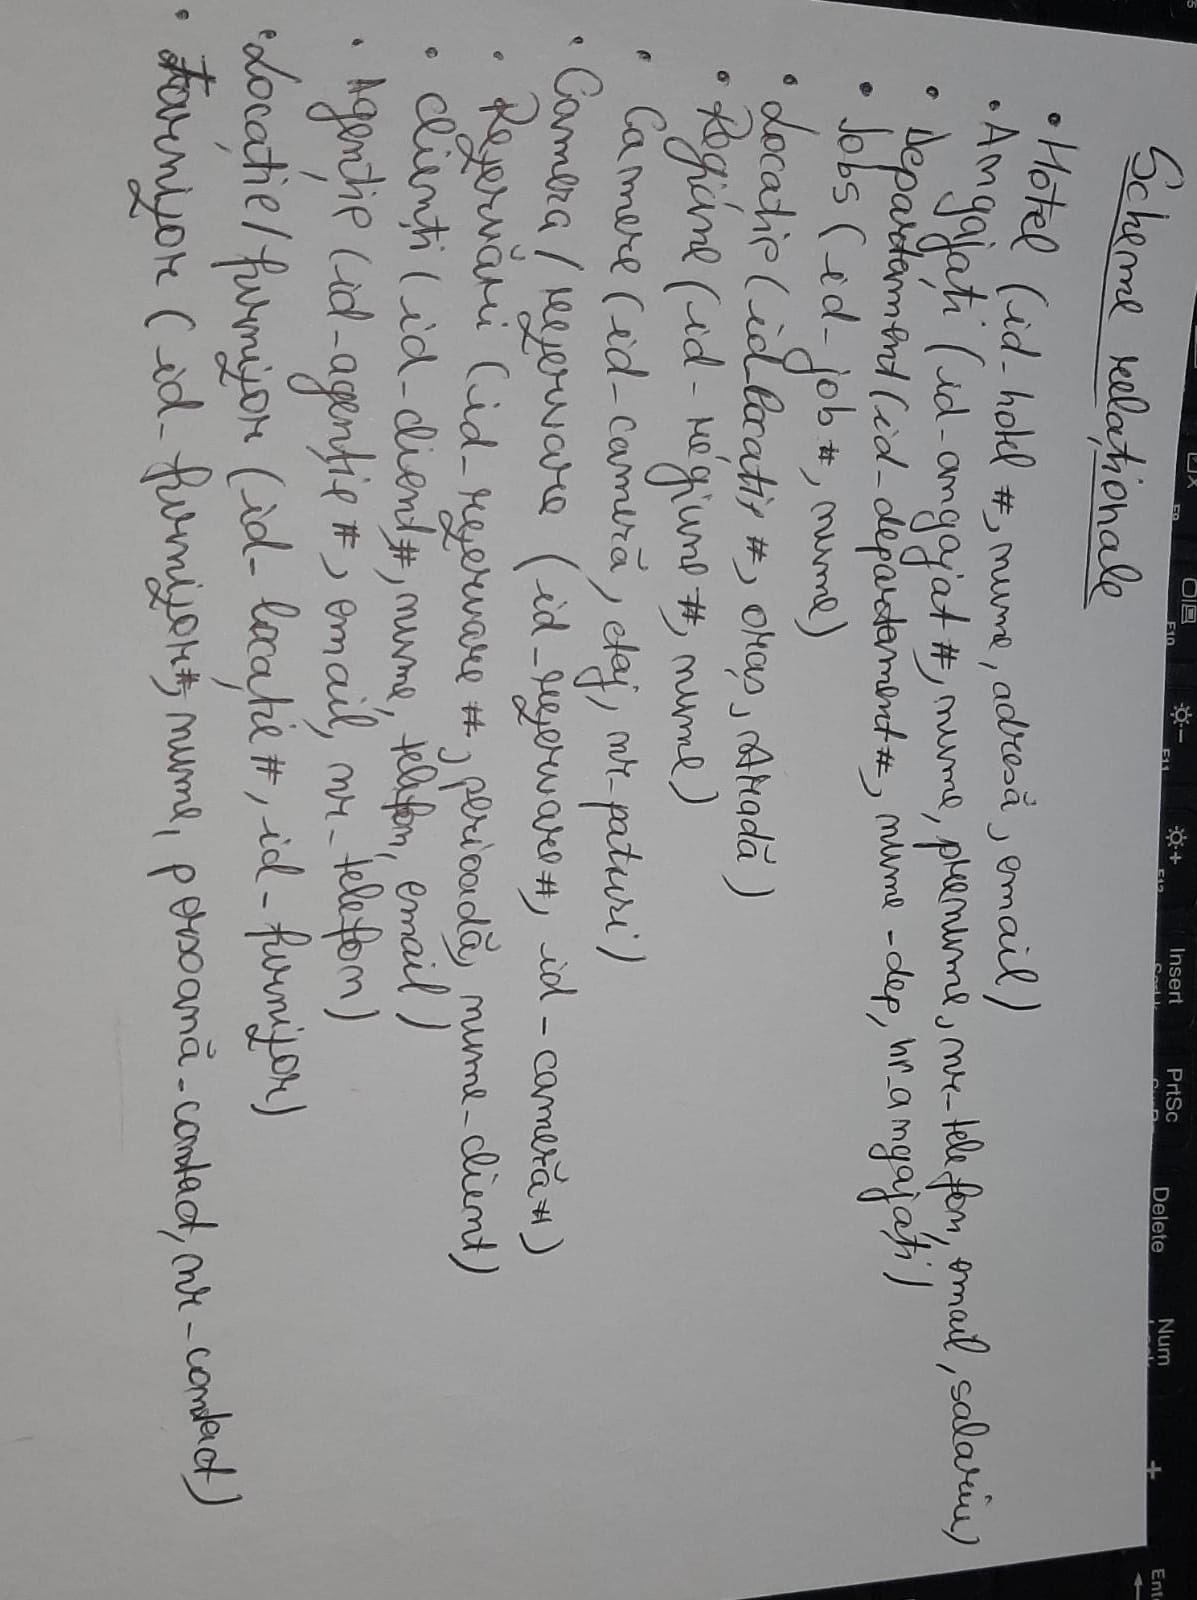 Scheme relaționale
• Hotel (id-hotel #, nume, adresă, email)
• Angajați (id-angajat #, nume, prenume, nr-telefon, email, salariu)
• Departament (id-departament #, nume-dep, nr_angajați)
• Jobs (id-job #, nume)
• Locatie (id_locatie #, oraș, stradă)
• Regiune (id-regiune #, nume)
• Camere (id-cameră, etaj, nr-paturi)
• Camera / rezervare (id_rezervare #, id-cameră #)
• Rezervări (id-rezervare #, perioadă, nume-client)
• clienți (id-client #, nume, telefon, email)
• Agenție (id-agenție #, email, nr-telefon)
• Locație / furnizor (id-locație #, id-furnizor)
• Furnizor (id-furnizor #, nume, persoană-contact, nr-contact)
Insert
PrtSc
Delete
Num
F9
F10
F11
+